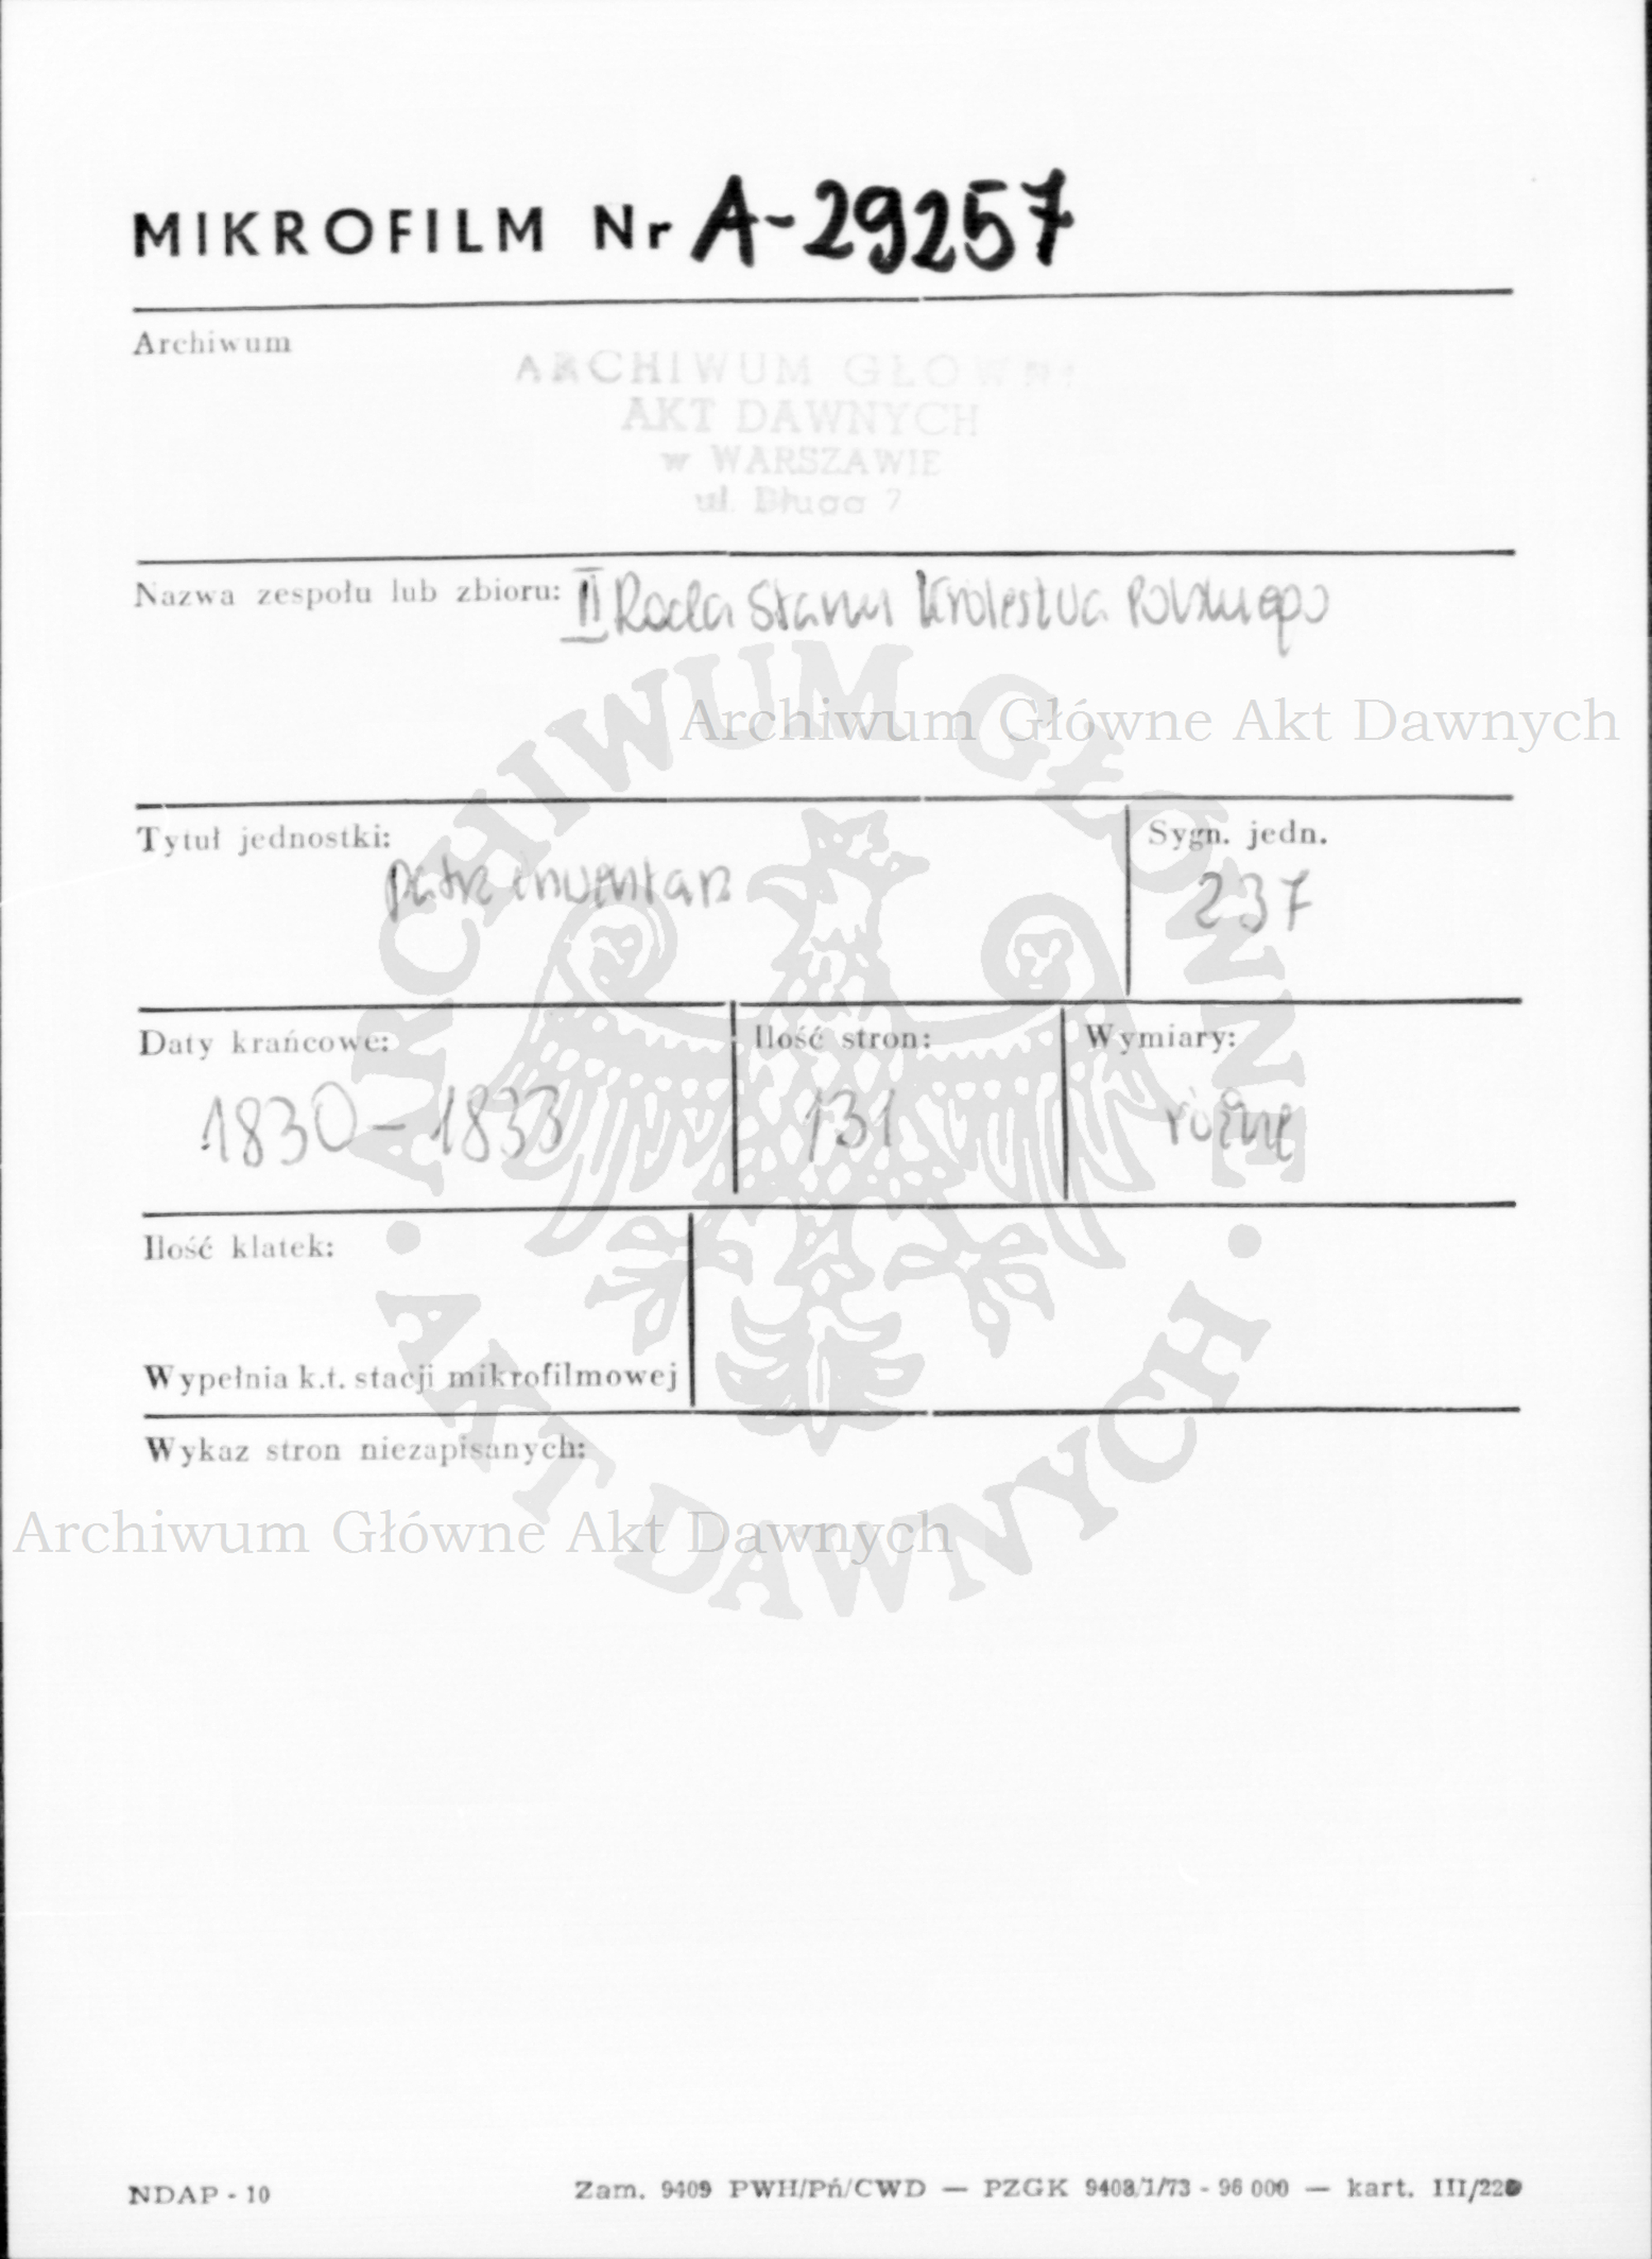 MIKROFILM Nr A-29257
Archiwum
ARCHIWUM GŁÓWNE
AKT DAWNYCH
w WARSZAWIE
ul. Długa 7
Nazwa zespołu lub zbioru: II Rada Stanu Królestwa Polskiego
Archiwum Główne Akt Dawnych
Tytuł jednostki:
patrz inwentarz
Sygn. jedn.
237
Daty krańcowe:
1830-1833
Ilość stron:
131
Wymiary:
różne
Ilość klatek:
Wypełnia k.t. stacji mikrofilmowej
Wykaz stron niezapisanych:
Archiwum Główne Akt Dawnych
ARCHIWUM GŁÓWNE
• AKT DAWNYCH •
NDAP - 10
Zam. 9409 PWH/Pń/CWD — PZGK 9408/1/73 - 96 000 — kart. III/220